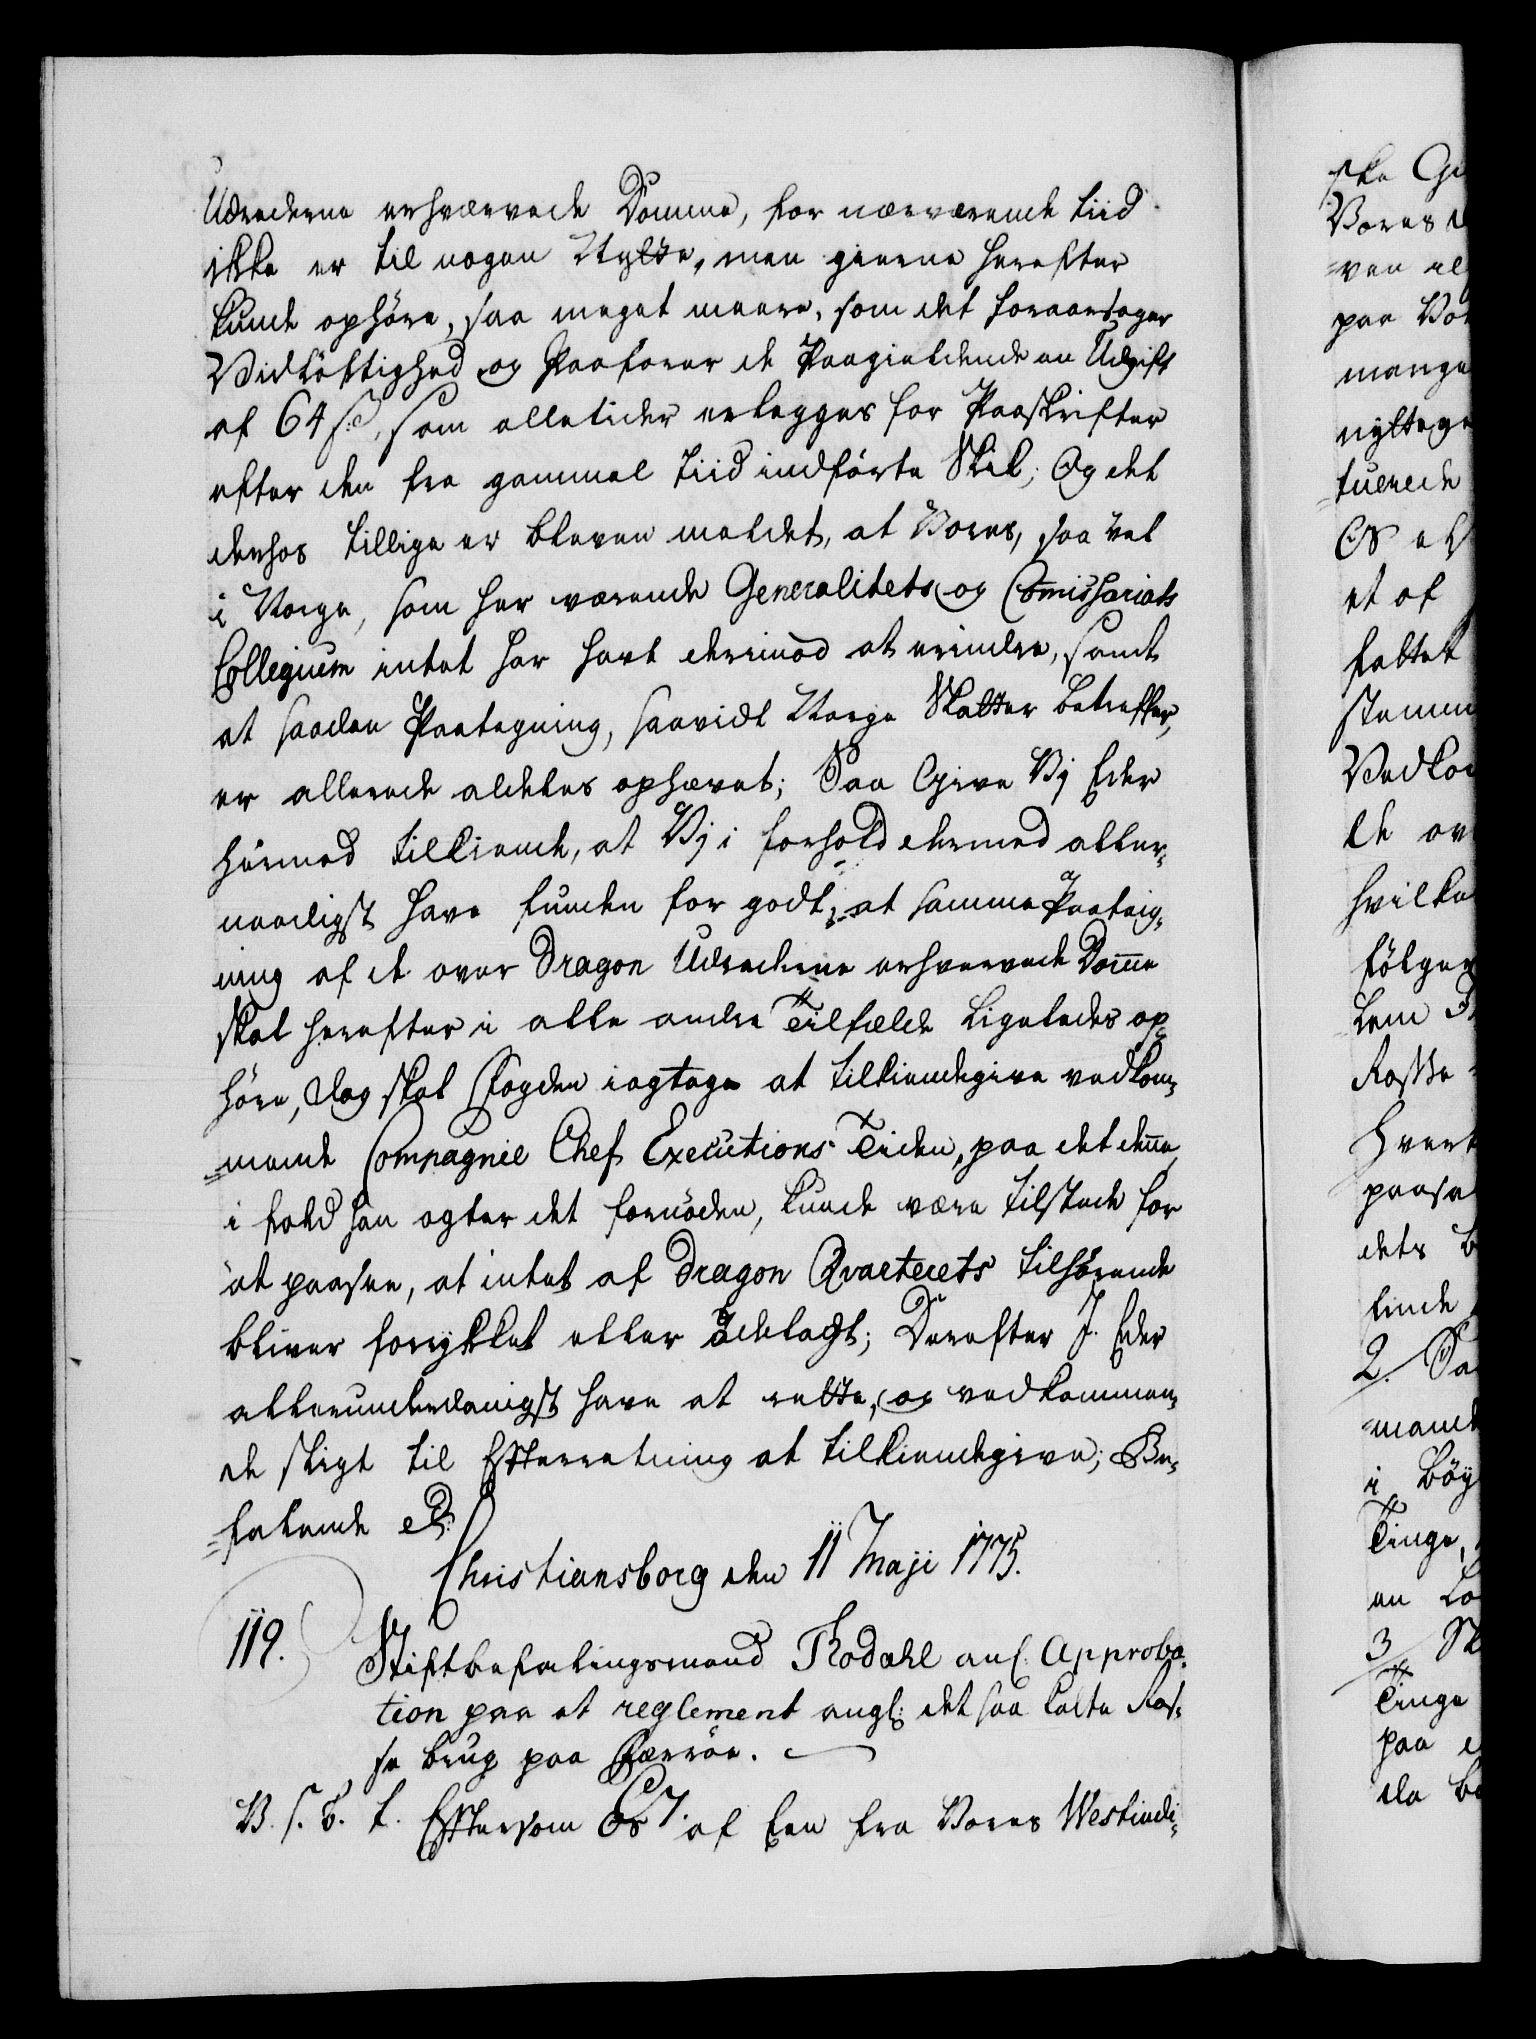 Udrederne erhværvede Domme, for nærværende tiid
ikke er til nogen Nytte, men gierne herefter
kunde ophöre, saa meget meere, som det foraarsager
Vidlöftighed og Paaförer de Paagieldende en Udgift
af 64 sz, som alletider erlegges for Paaskrifter
efter den fra gammel tiid indförte Skik; Og det
derhos tillige er bleven meldet, at Vores, saa vel
i Norge, som her værende Generalitets og Commissariats
Collegium intet har havt derimod at erindre, samt
at saadan Paategning, saavidt Norge Skatter betreffer,
er allerede aldeles ophævet; Saa Give Vj Eder
hermed tilkiende, at Vj i forhold dermed aller-
naadigst have funden for godt, at samme Paateig-
ning af de over Dragon Udrederne erhvervede Domme
skal herefter i alle andre Tilfælde ligeledes op-
höre, dog skal Fogden iagtage at tilkiendegive vedkom-
mende Compagnie Chef Executions Tiden, paa det denne,
i fald han agter det fornöden, kunde være tilstede for
at paasee, at intet af Dragon Qvarterets tilhörende
bliver forrykket eller ödelagt; Derefter I Eder
allerunderdanigst have at rette, og vedkommen-
de sligt til Efterretning at tilkiendegive; Be-
falende etc:
Christiansborg den 11 Maji 1775.
119. Stiftbefalingsmand Thodahl anl. Approba-
tion paa et reglement angl: det saa kalte Ras-
se brug paa Færröe.
V. S. G. T. Eftersom Os af Een fra Vores Westindi-
ske
Vores
paa
mange
tuerede
Os
et af
fattet
Vedkom
de
hvilke
fölgen
Rasse
hvert
paasee
dets
finde
2. Saa
i
Tinge,
en
3
Tinge
paa
da